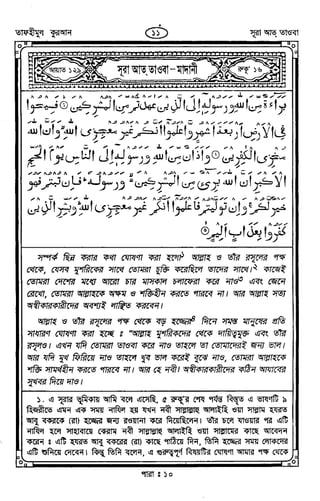 তাফহীমুল কুরআন ১১ সূরা আত্ তাওবা
আয়াত ১২৯ সূরা আত্ তাওবা - মাদানী রুকূ' ১৬
بَرَاءَةٌ مِّنَ اللَّهِ وَرَسُولِهِ إِلَى الَّذِينَ عَاهَدتُّم مِّنَ الْمُشْرِكِينَ ① فَسِيحُوا
فِي الْأَرْضِ أَرْبَعَةَ أَشْهُرٍ وَاعْلَمُوا أَنَّكُمْ غَيْرُ مُعْجِزِي اللَّهِ وَأَنَّ اللَّهَ
مُخْزِي الْكَافِرِينَ ② وَأَذَانٌ مِّنَ اللَّهِ وَرَسُولِهِ إِلَى النَّاسِ يَوْمَ الْحَجِّ
الْأَكْبَرِ أَنَّ اللَّهَ بَرِيءٌ مِّنَ الْمُشْرِكِينَ وَرَسُولُهُ فَإِن تُبْتُمْ فَهُوَ
خَيْرٌ لَّكُمْ وَإِن تَوَلَّيْتُمْ فَاعْلَمُوا أَنَّكُمْ غَيْرُ مُعْجِزِي اللَّهِ وَبَشِّرِ الَّذِينَ
كَفَرُوا بِعَذَابٍ أَلِيمٍ ③
সম্পর্ক ছিন্ন করার কথা ঘোষণা করা হলো১ আল্লাহ ও তাঁর রসূলের পক্ষ
থেকে, যেসব মুশরিকের সাথে তোমরা চুক্তি করেছিলে তাদের সাথে।২ কাজেই
তোমরা দেশের মধ্যে আরো চার মাসকাল চলাফেরা করে নাও৩ এবং জেনে
রেখো, তোমরা আল্লাহকে অক্ষম ও শক্তিহীন করতে পারবে না। আর আল্লাহ সত্য
অস্বীকারকারীদের অবশ্যই লাঞ্ছিত করবেন।
আল্লাহ ও তাঁর রসূলের পক্ষ থেকে বড় হজ্জের৪ দিনে সমস্ত মানুষের প্রতি
সাধারণ ঘোষণা করা হচ্ছে : "আল্লাহ মুশরিকদের থেকে দায়িত্বমুক্ত এবং তাঁর
রসূলও। এখন যদি তোমরা তাওবা করে নাও তাহলে তা তোমাদেরই জন্য ভাল।
আর যদি মুখ ফিরিয়ে নাও তাহলে খুব ভাল করেই বুঝে নাও, তোমরা আল্লাহকে
শক্তি সামর্থহীন করতে পারবে না। আর হে নবী! অস্বীকারকারীদের কঠিন আযাবের
সুখবর দিয়ে দাও।
১. এ সূরার ভূমিকায় আমি বলে এসেছি, ৫ রুকূ'র শেষ পর্যন্ত বিস্তৃত এ ভাষণটি ৯
হিজরীতে এমন এক সময় নাযিল হয় যখন নবী সাল্লাল্লাহু আলাইহি ওয়া সাল্লাম হযরত
আবু বকরকে (রা) হজ্জের জন্য রওয়ানা করে দিয়েছিলেন। তাঁর চলে যাওয়ার পর এটি
নাযিল হলে সাহাবায়ে কেরাম নবী সাল্লাল্লাহু আলাইহি ওয়া সাল্লামের কাছে আবেদন
করেন : এটি হযরত আবু বকরের (রা) কাছে পাঠিয়ে দিন, তিনি হজ্জের সময় লোকদের
এটি শুনিয়ে দেবেন। কিন্তু তিনি বলেন, এ গুরুত্বপূর্ণ বিষয়টির ঘোষণা আমার পক্ষ থেকে
পারা : ১০